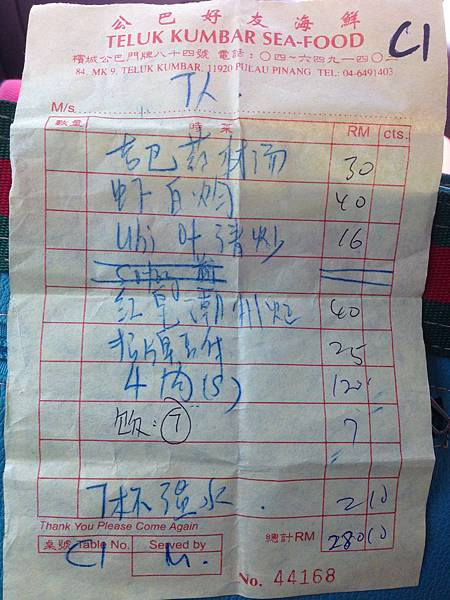 公巴好友海鮮
TELUK KUMBAR SEA-FOOD
檳城公巴門牌八十四號 電話：〇四～六四九一四〇三
84, MK 9, TELUK KUMBAR, 11920 PULAU PINANG TEL: 04-6491403
C1
7人.
M/s
數量 時菜 RM cts.
湯 30
虾白灼 40
Ubi 叶清炒 16
40
25
4肉(S) 120
飯: 7 7
7杯 水. 2 10
Thank You Please Come Again
桌號 Table No. Served by 總計 RM 280 10
C1 M.
No. 44168